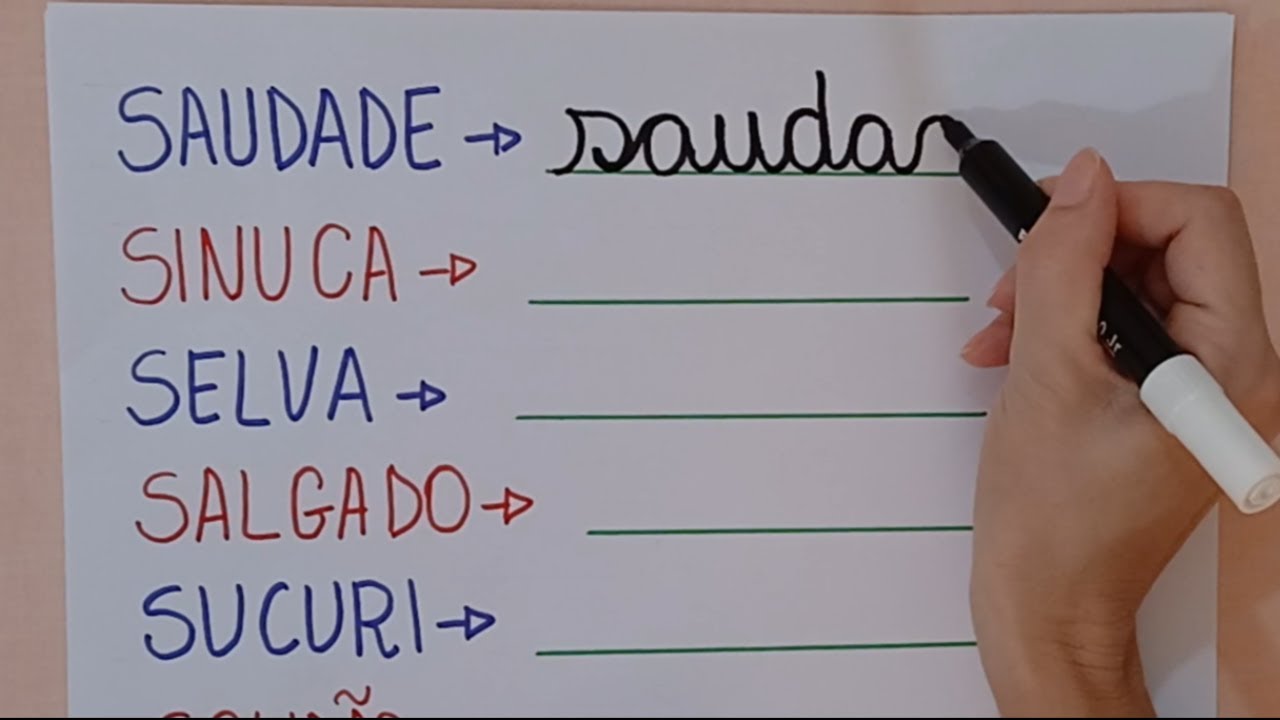 SAUDADE → sauda
SINUCA →
SELVA →
SALGADO →
SUCURI →